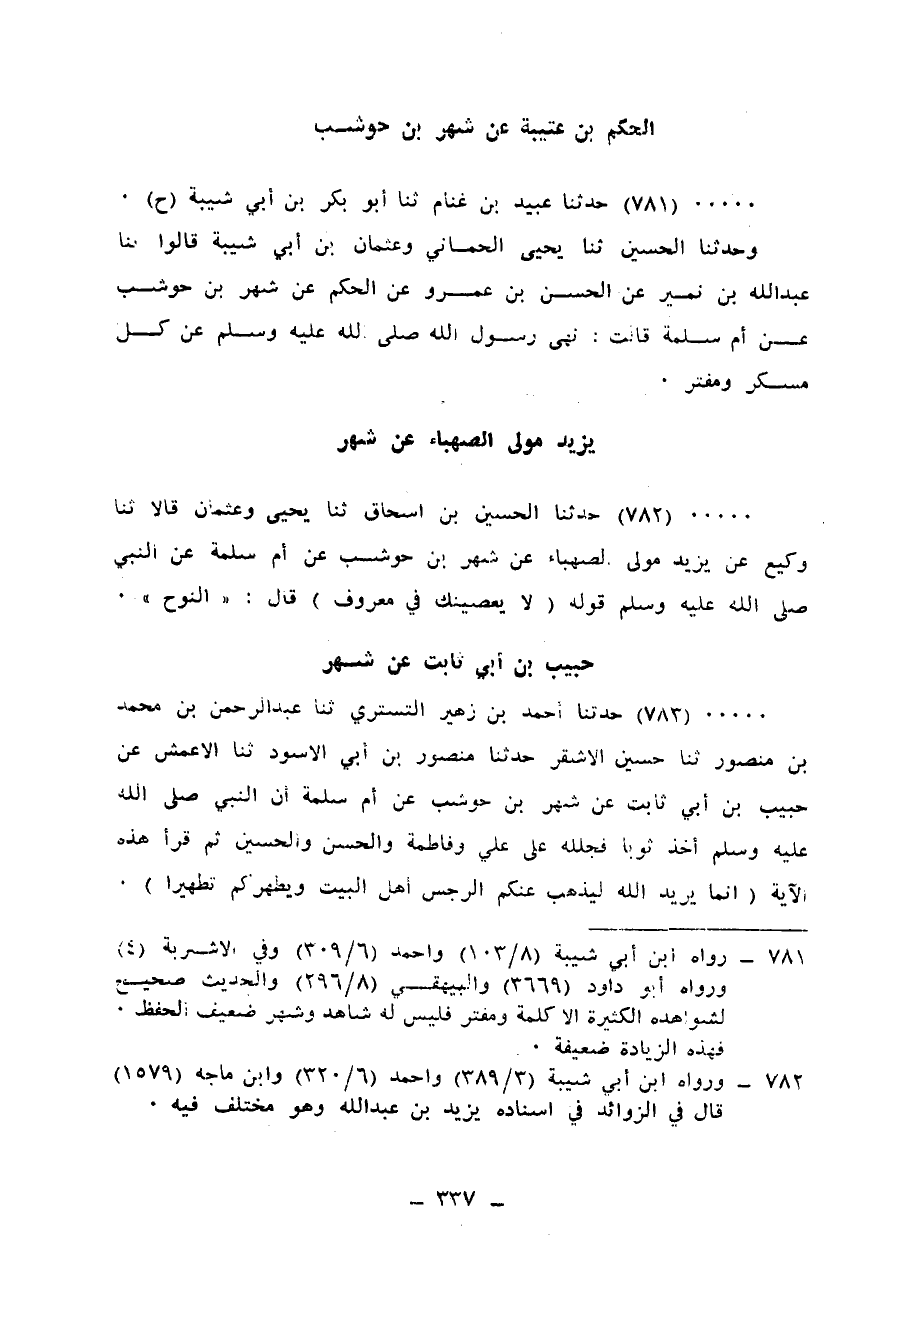 الحكم بن عتيبة عن شهر بن حوشب
..... (٧٨١) حدثنا عبيد بن غنام ثنا أبو بكر بن أبي شيبة (ح) .
وحدثنا الحسين ثنا يحيى الحماني وعثمان بن أبي شيبة قالوا ثنا
عبدالله بن نمير عن الحسن بن عمرو عن الحكم عن شهر بن حوشب
عن أم سلمة قالت : نهى رسول الله صلى الله عليه وسلم عن كل
مسكر ومفتر .
يزيد مولى الصهباء عن شهر
..... (٧٨٢) حدثنا الحسين بن اسحاق ثنا يحيى وعثمان قالا ثنا
وكيع عن يزيد مولى الصهباء عن شهر بن حوشب عن أم سلمة عن النبي
صلى الله عليه وسلم قوله ( لا يعصينك في معروف ) قال : « النوح » .
حبيب بن أبي ثابت عن شهر
..... (٧٨٣) حدثنا أحمد بن زهير التستري ثنا عبدالرحمن بن محمد
بن منصور ثنا حسين الاشقر حدثنا منصور بن أبي الاسود ثنا الاعمش عن
حبيب بن أبي ثابت عن شهر بن حوشب عن أم سلمة أن النبي صلى الله
عليه وسلم أخذ ثوبا فجلله على علي وفاطمة والحسن والحسين ثم قرأ هذه
الآية ( انما يريد الله ليذهب عنكم الرجس أهل البيت ويطهركم تطهيرا ) .
٧٨١ – رواه ابن أبي شيبة (١٠٣/٨) واحمد (٣٠٩/٦) وفي الاشربة (٤)
ورواه أبو داود (٣٦٦٩) والبيهقي (٢٩٦/٨) والحديث صحيح
لشواهده الكثيرة الا كلمة ومفتر فليس له شاهد وشهر ضعيف الحفظ .
فهذه الزيادة ضعيفة .
٧٨٢ – ورواه ابن أبي شيبة (٣٨٩/٣) واحمد (٣٢٠/٦) وابن ماجه (١٥٧٩)
قال في الزوائد في اسناده يزيد بن عبدالله وهو مختلف فيه .
– ٣٣٧ –